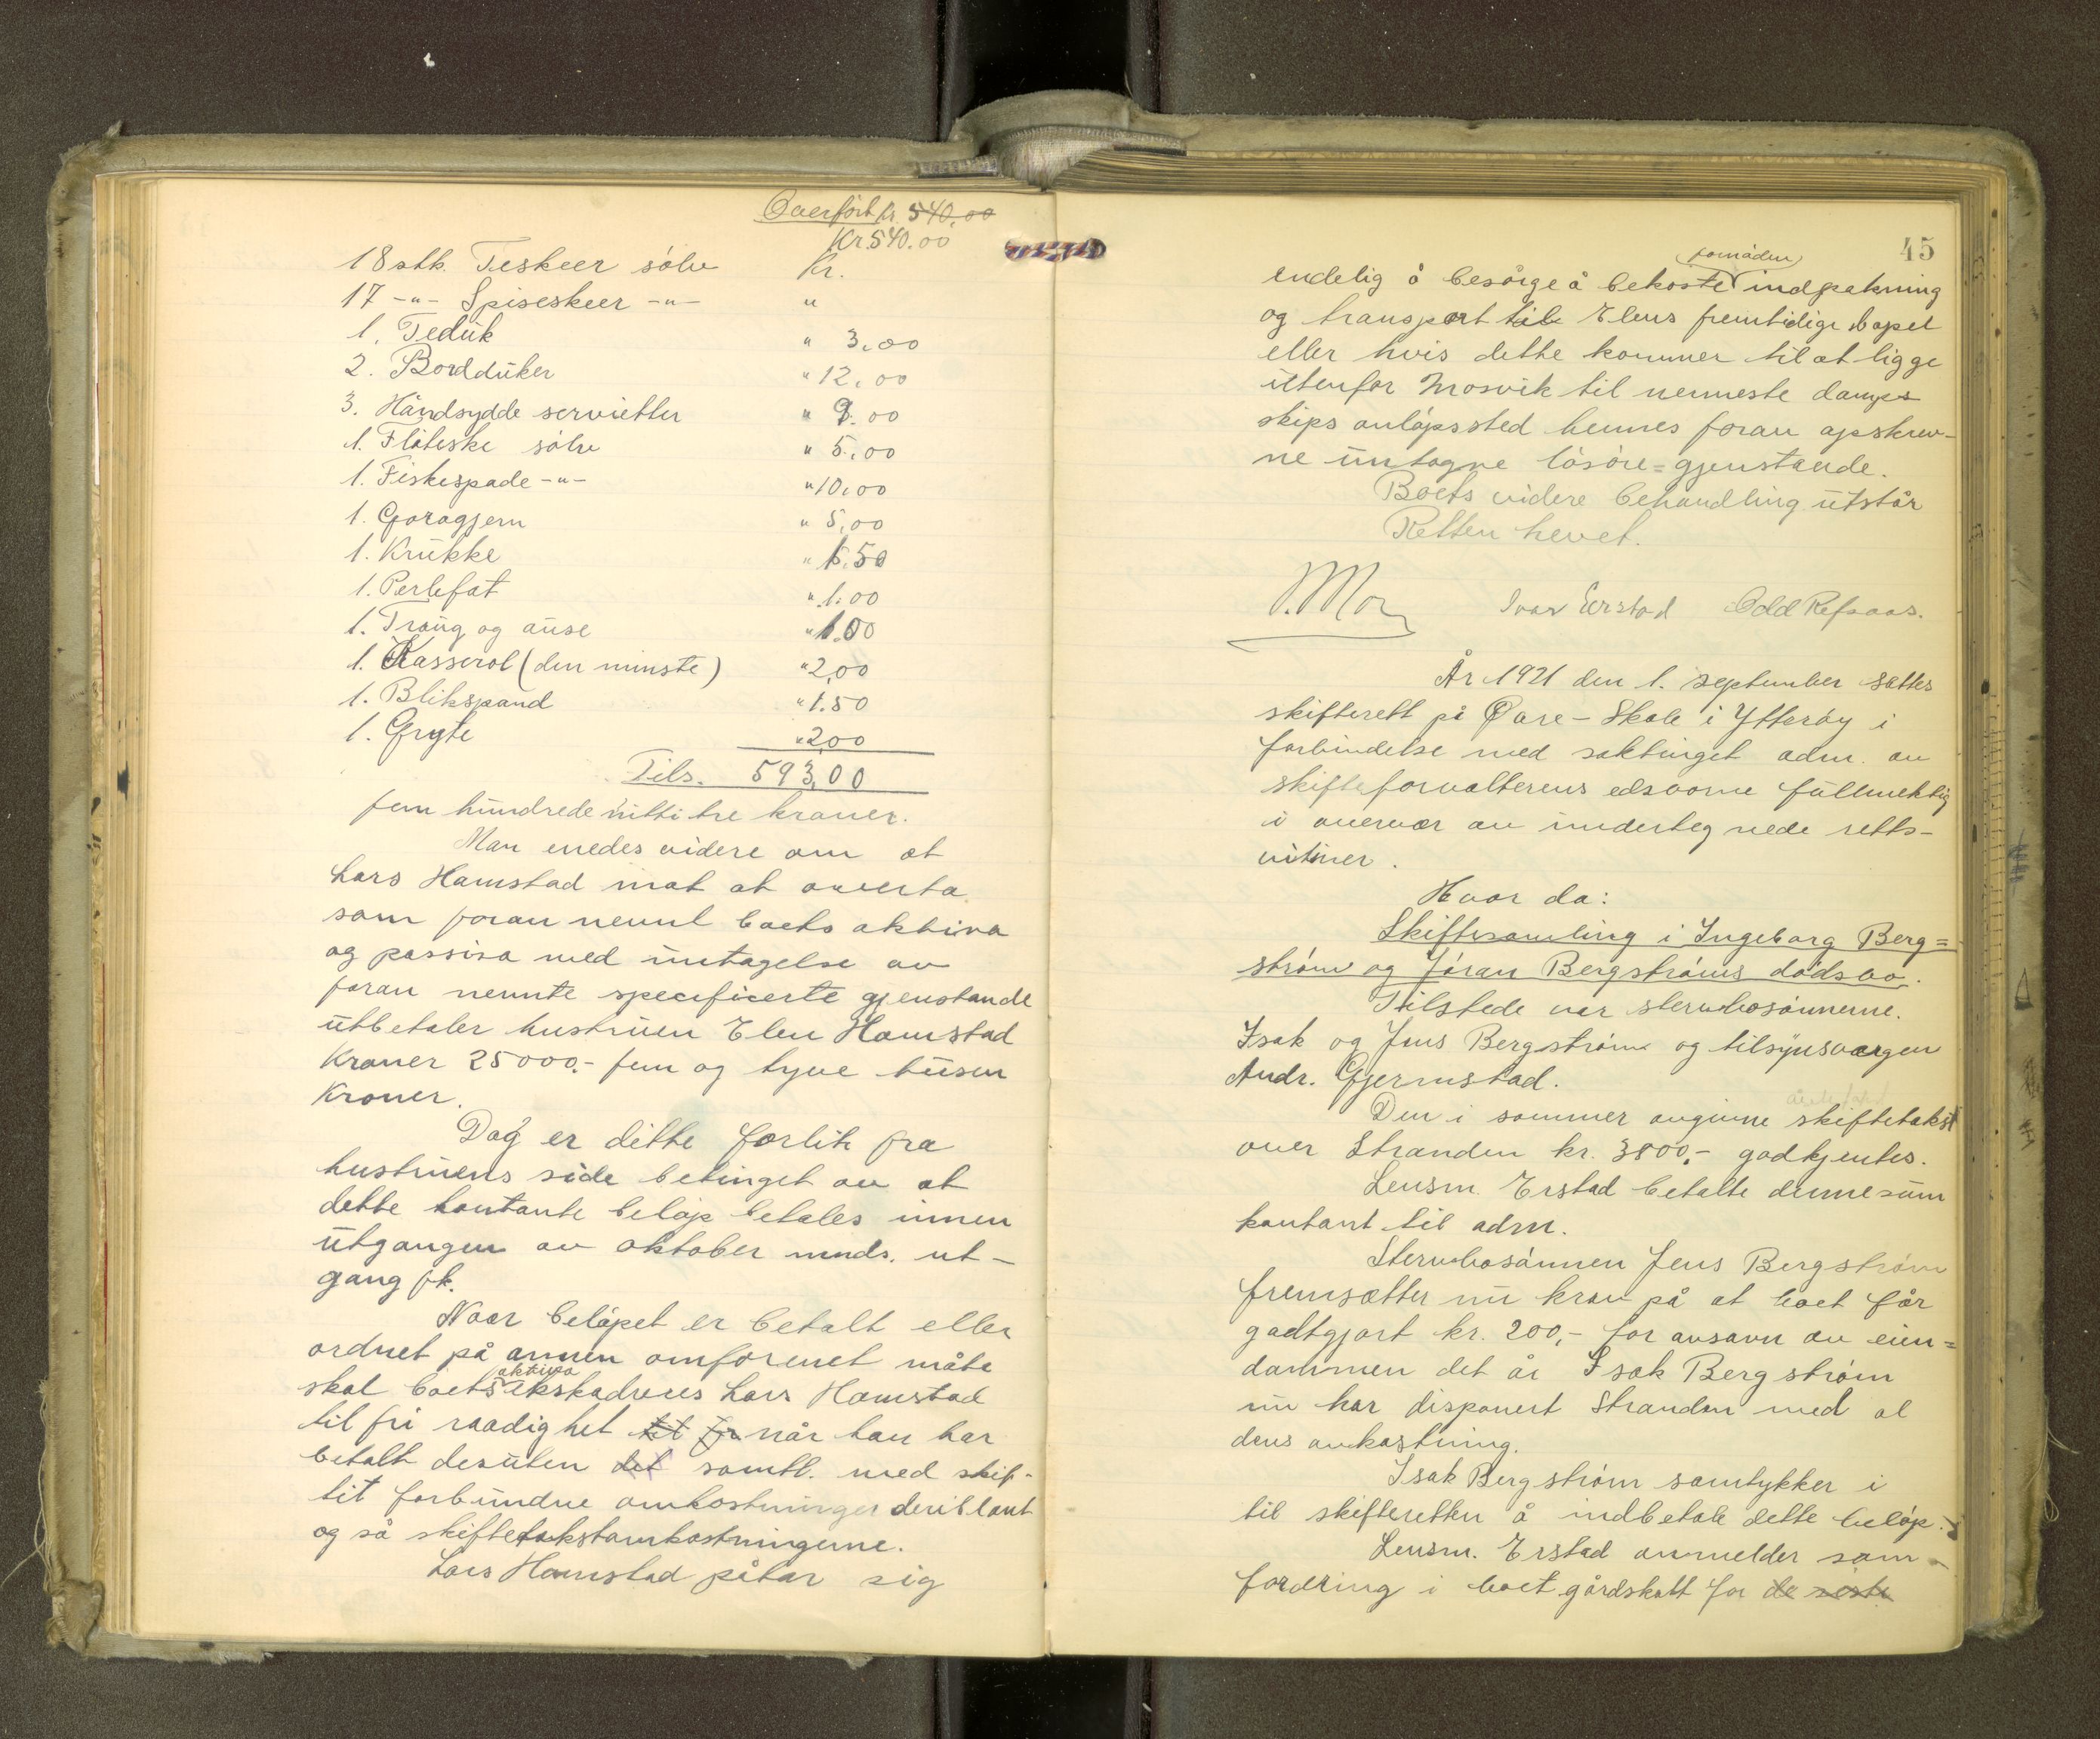 Overført kr 540,00
Kr 540.00
18 stk. Teskeer sølv Kr.
17 -"- Spiseskeer -"- "
1. Teduk " 3.00
2. Bordduker " 12.00
3. Håndsydde servietter " 9.00
1. Fløteske sølv " 5.00
1. Fiskespade -"- " 10.00
1. Gorogjern " 5,00
1. Krukke " 1.50
1. Perlefat " 1.00
1. Traug og ause " 1.00
1. Kasserol (den minste) " 2,00
1. Blikspand " 1.50
1. Gryte " 2,00
Tils. 593,00
fem hundrede nitti tre kroner.
Man enedes videre om at
Lars Hamstad mot at overta
som foran nevnt boets aktiva
og passiva med untagelse av
foran nevnte specificerte gjenstande
utbetaler hustruen Elen Hamstad
Kroner 25000,- fem og tyve tusen
Kroner.
Dog er dette forlik fra
hustruens side betinget av at
dette kontante beløp betales innen
utgangen av oktober mnds. ut-
gang fk.
Naar beløpet er betalt eller
ordnet på annen omforenet måte
aktiva
skal boets ekstraderes Lars Hamstad
til fri raadighet til fr når han har
betalt desuten det samtl. med skif-
tit forbundne omkostninger deriblant
og så skiftetakstomkostningerne.
Lars Hamstad påtar sig
45
forsvarlig
endelig å besørge å bekoste indpakning
og transport til Elens fremtidige bopel
eller hvis dette kommer til at ligge
utenfor Mosvik til nermeste damps
skips anløpssted hennes foran opskrev-
ne untagne løsøre=gjenstande.
Boets videre behandling utstår
Retten hevet.
Ivar Erstad Odd Refsaas.
År 1921 den 1. september sattes
skifterett på Øvre-Skole i Ytterøy i
forbindelse med saktinget adm. av
skifteforvalterens edsvorne fullmektig
i overvær av undertegnede retts-
vitner.
Hvor da:
Skiftesamling i Ingeborg Berg=
strøm og Jøran Bergstrøms dødsbo.
Tilstede var stervbosønnerne.
Isak og Jens Bergstrøm og tilsynsvergen
Andr. Gjermstad.
Den i sommer avgivne skiftetakst
over Stranden kr. 3800,- godkjentes.
Lensm. Erstad betalte denne sum
kontant til adm.
Stervbosønnen Jens Bergstrøm
fremsætter nu krav på at boet får
godtgjort kr. 200,- for avsavn av eien=
dommen det år Isak Bergstrøm
nu har disponert Stranden med al
dens avkastning.
Isak Bergstrøm samtykker i
til skifteretten å indbetale dette beløp.
Lensm. Erstad anmelder som
fordring i boet gårdskatt for de siste